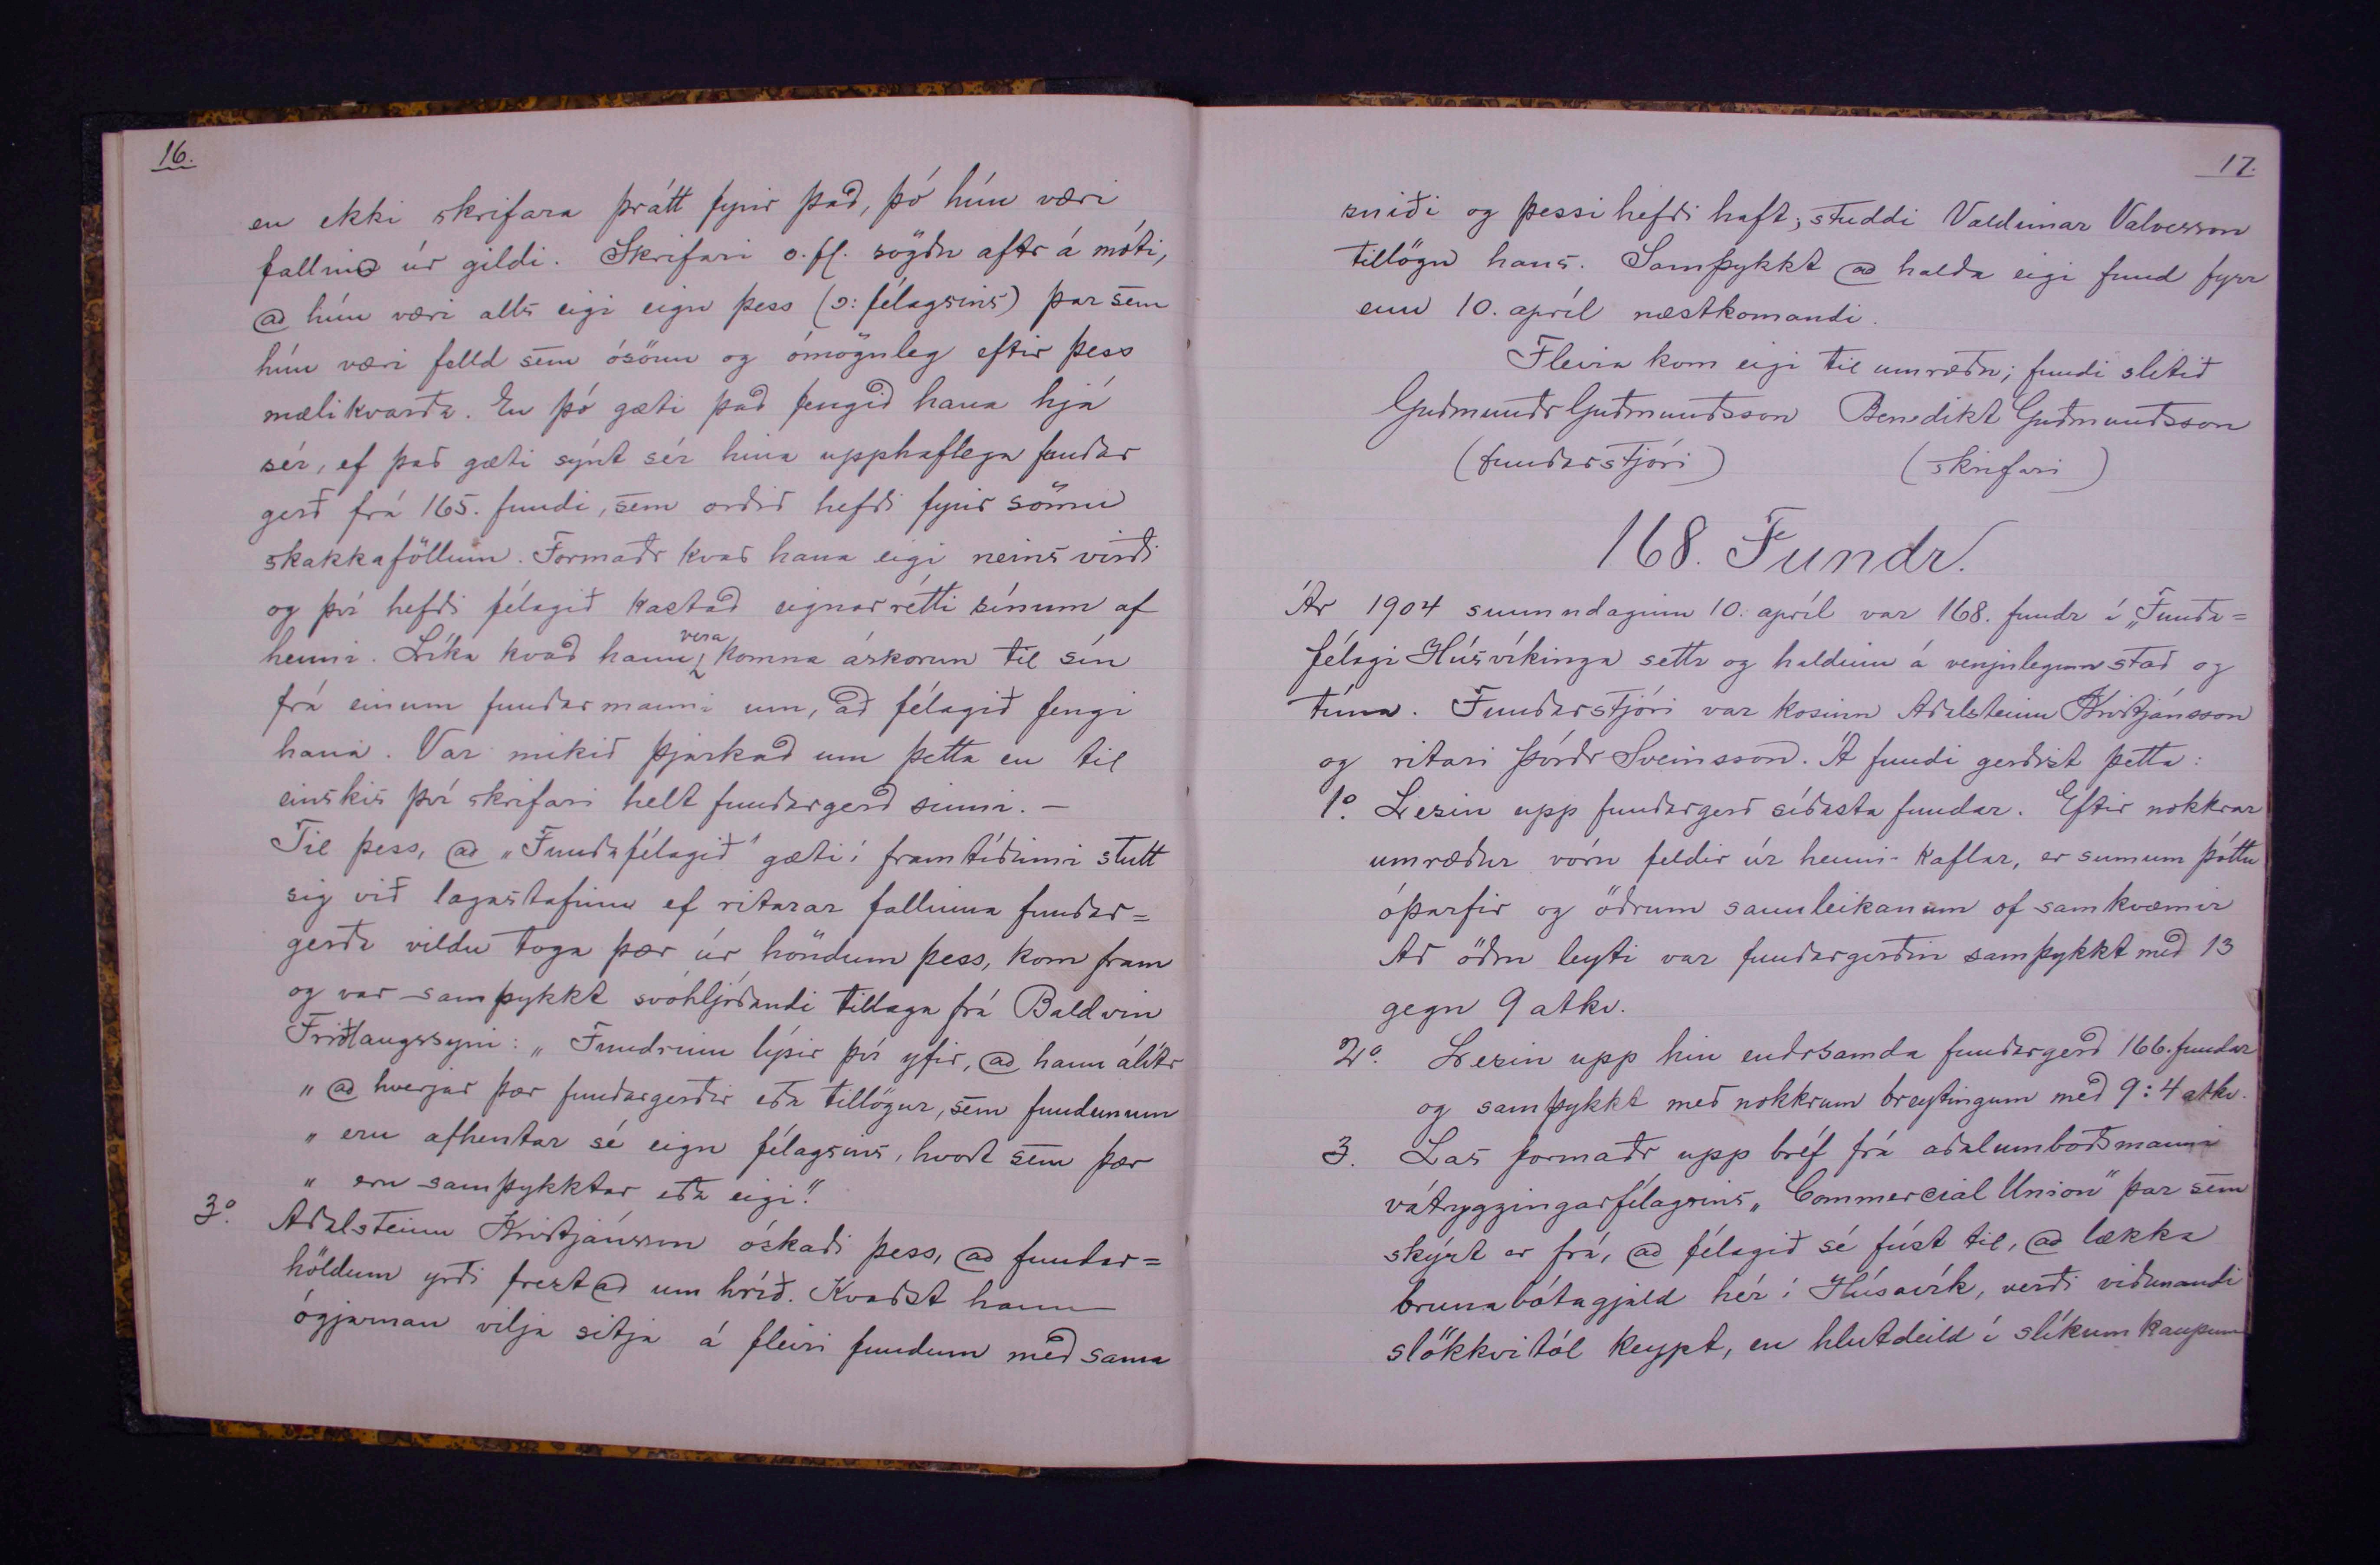 16.
en ekki skrifara þrátt fyrir það, þó hún væri
fallin úr gildi. Skrifari o.fl. sögðu aftr á móti,
að hún væri alls eigi eign þess (ɔ: félagsins) þar sem
hún væri felld sem ósönn og ómöguleg eftir þess
mælikvarða. En þó gæti það fengið hana hjá
sér, ef það gæti sýnt sér hina upphaflega fundar
gerð frá 165. fundi, sem orðið hefði fyrir sömu
skakkaföllum. Formaðr kvað hana eigi neins virði
og því hefði félagið kastað eignarrétti sínum af
henni. Líka kvað hann vera komna áskorun til sín
frá einum fundarmanni um, að félagið fengi
hana. Var mikið þjarkað um þetta en til
einskis því skrifari helt fundargerð sinni. –
Til þess, að „Fundafélagið“ gæti í framtíðinni stutt
sig við lagastafinn ef ritarar fallinna fundar=
gerða vildu toga þær úr höndum þess, kom fram
og var samþykkt svohljóðandi tillaga frá Baldvin
Friðlaugssyni: „Fundrinn lýsir því yfir, að hann álítr
„ að hverjar þær fundargerðir eða tillögur, sem fundunum
„ eru afhentar sé eign félagsins, hvort sem þær
„ eru samþykktar eða eigi“.
3º. Aðalsteinn Kristjánsson óskaði þess, að fundar=
höldum yrði frestað um hríð. Kvaðst hann
ógjarnan vilja sitja á fleiri fundum með sama
17.
sniði og þessi hefði haft; studdi Valdimar Valvesson
tillögu hans. Samþykkt að halda eigi fund fyrr
enn 10. apríl næstkomandi.
Fleira kom eigi til umræðu; fundi slitið
Guðmundr Guðmundsson Benedikt Guðmundsson
(fundarstjóri) (skrifari)
168. Fundr.
Ár 1904 sunnudaginn 10. apríl var 168. fundr í „Funda=
félagi Húsvíkinga settr og haldinn á venjulegum stað og
tíma. Fundarstjóri var kosinn Aðalsteinn Kristjánsson
og ritari Þórðr Sveinsson. Á fundi gerðist þetta:
1º. Lesin upp fundargerð síðasta fundar. Eftir nokkrar
umræður vóru feldir úr henni kaflar, er sumum þóttu
óþarfir og öðrum sannleikanum of samkvæmir
Að öðru leyti var fundargerðin samþykkt með 13
gegn 9 atkv.
2º. Lesin upp hin endrsamda fundargerð 166. fundar
og samþykkt með nokkrum breytingum með 9:4 atkv.
3. Las formaðr upp bréf frá aðalumboðsmanni
vátryggingarfélagsins „Commercial Union“ þar sem
skýrt er frá, að félagið sé fúst til, að lækka
brunabótagjald hér í Húsavík, verði viðunandi
slökkvitól keypt, en hlutdeild í slíkum kaupum